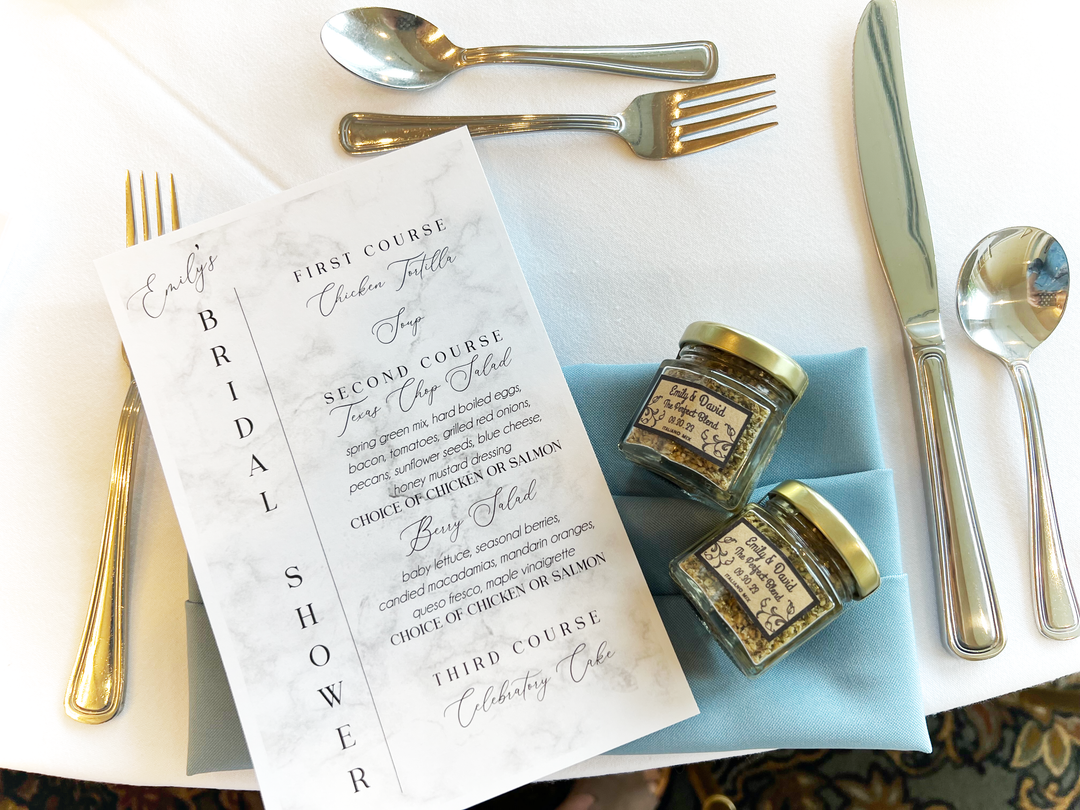 Emily's
BRIDAL SHOWER
FIRST COURSE
Chicken Tortilla
Soup
SECOND COURSE
Texas Chop Salad
spring green mix, hard boiled eggs,
bacon, tomatoes, grilled red onions,
pecans, sunflower seeds, blue cheese,
honey mustard dressing
CHOICE OF CHICKEN OR SALMON
Berry Salad
baby lettuce, seasonal berries,
candied macadamias, mandarin oranges,
queso fresco, maple vinaigrette
CHOICE OF CHICKEN OR SALMON
THIRD COURSE
Celebratory Cake
Emily & David
The Perfect Blend
09.30.22
ITALIANO MIX
Emily & David
The Perfect Blend
09.30.22
ITALIANO MIX